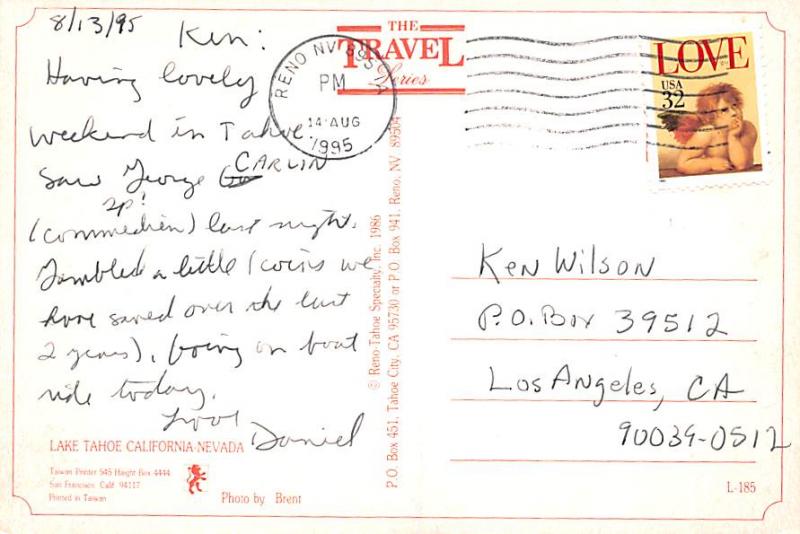 8/13/95
Ken:
Having lovely
weekend in Tahoe.
Saw George CARLIN
sp!
(commedien) last night.
Gambled a little (coins we
have saved over the last
2 years). Going on boat
ride today.
Love
Daniel
LAKE TAHOE CALIFORNIA-NEVADA
Taiwan Printer 545 Haight Box 4444
San Francisco, Calif 94117
Printed in Taiwan
Photo by Brent
THE
TRAVEL
Series
RENO NV
PM
14 AUG
1995
© Reno-Tahoe Specialty, Inc. 1986
P.O. Box 451, Tahoe City, CA 95730 or P.O. Box 941, Reno, NV 89504
LOVE
USA
32
Ken Wilson
P.O. Box 39512
Los Angeles, CA
90039-0512
L-185